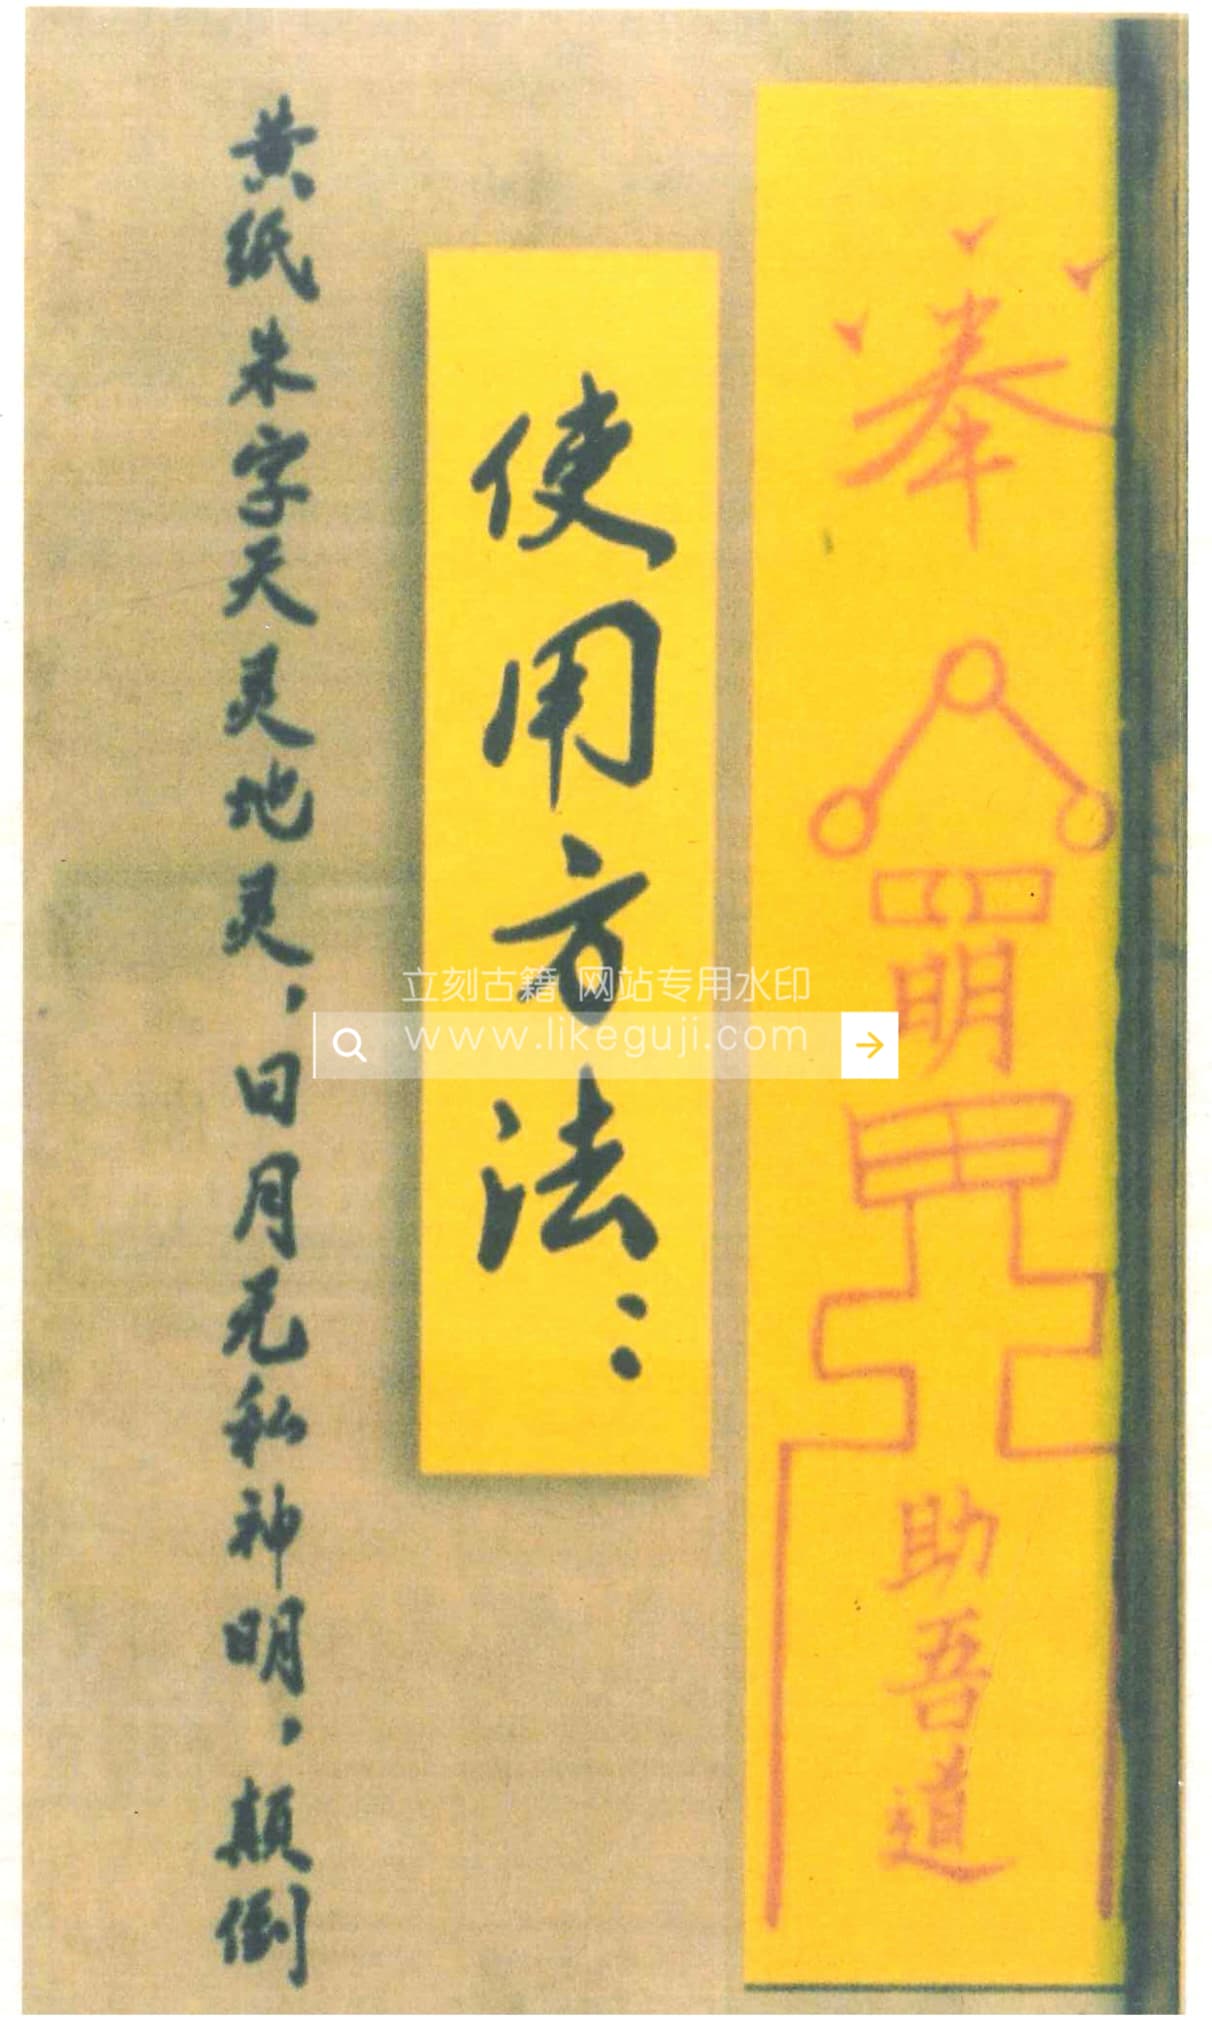 奉
明
助吾道
使用方法：
黄纸朱字天灵地灵，日月无私神明，颠倒
立刻古籍 网站专用水印
www.likeguji.com